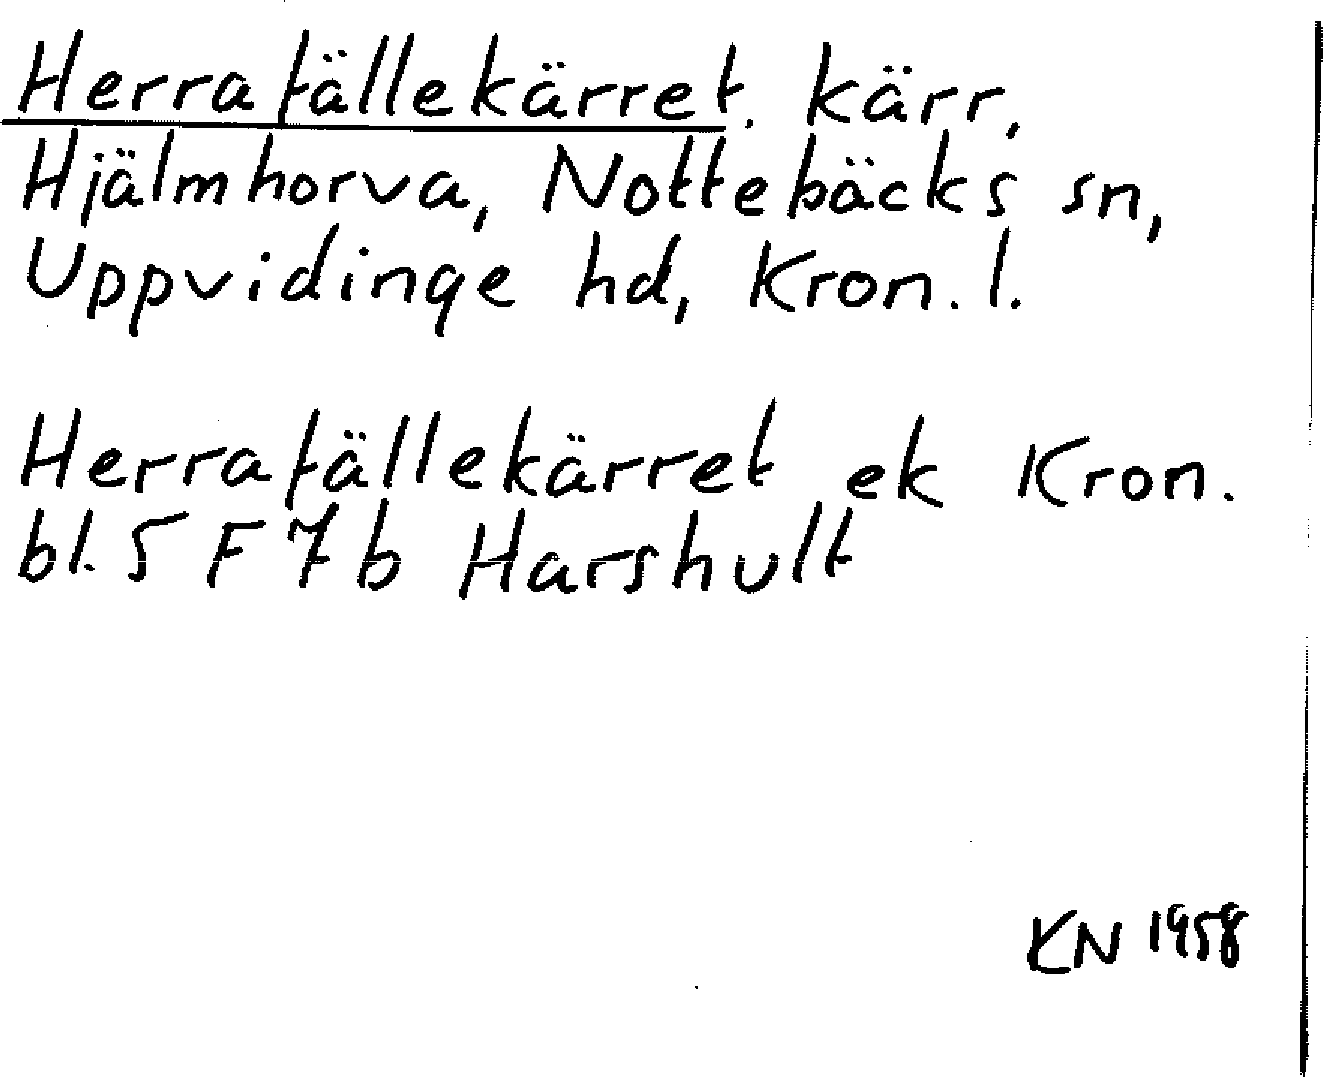 Herrafällekärret. kärr,
Hjälmhorva, Nottebäcks sn,
Uppvidinge hd, Kron. l.
Herrafällekärret ek Kron.
bl. 5 F 7 b Harshult
KN 1958